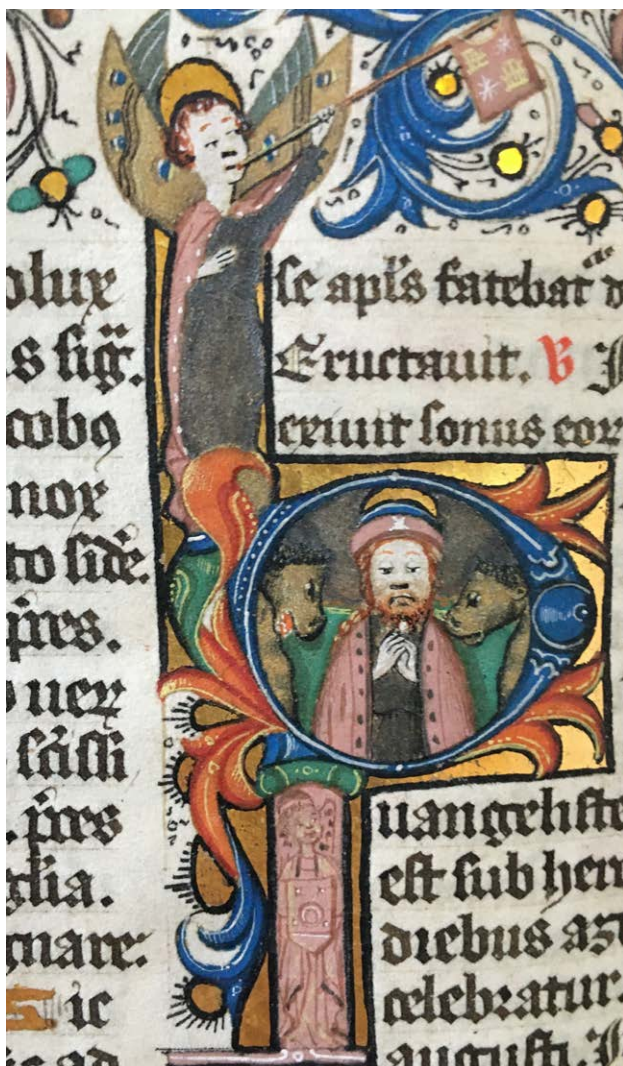 olux
s sig̅.
cobꝯ
nox
to side̅.
p̅res.
uer
sc̅issi
p̅res
gl̅ia.
gnare:
ic
ad
se apl̅s fatebat d
Eructauit. V
exiuit sonus eor
uangeliste
est sub her
diebus az
celebratur.
augusti.